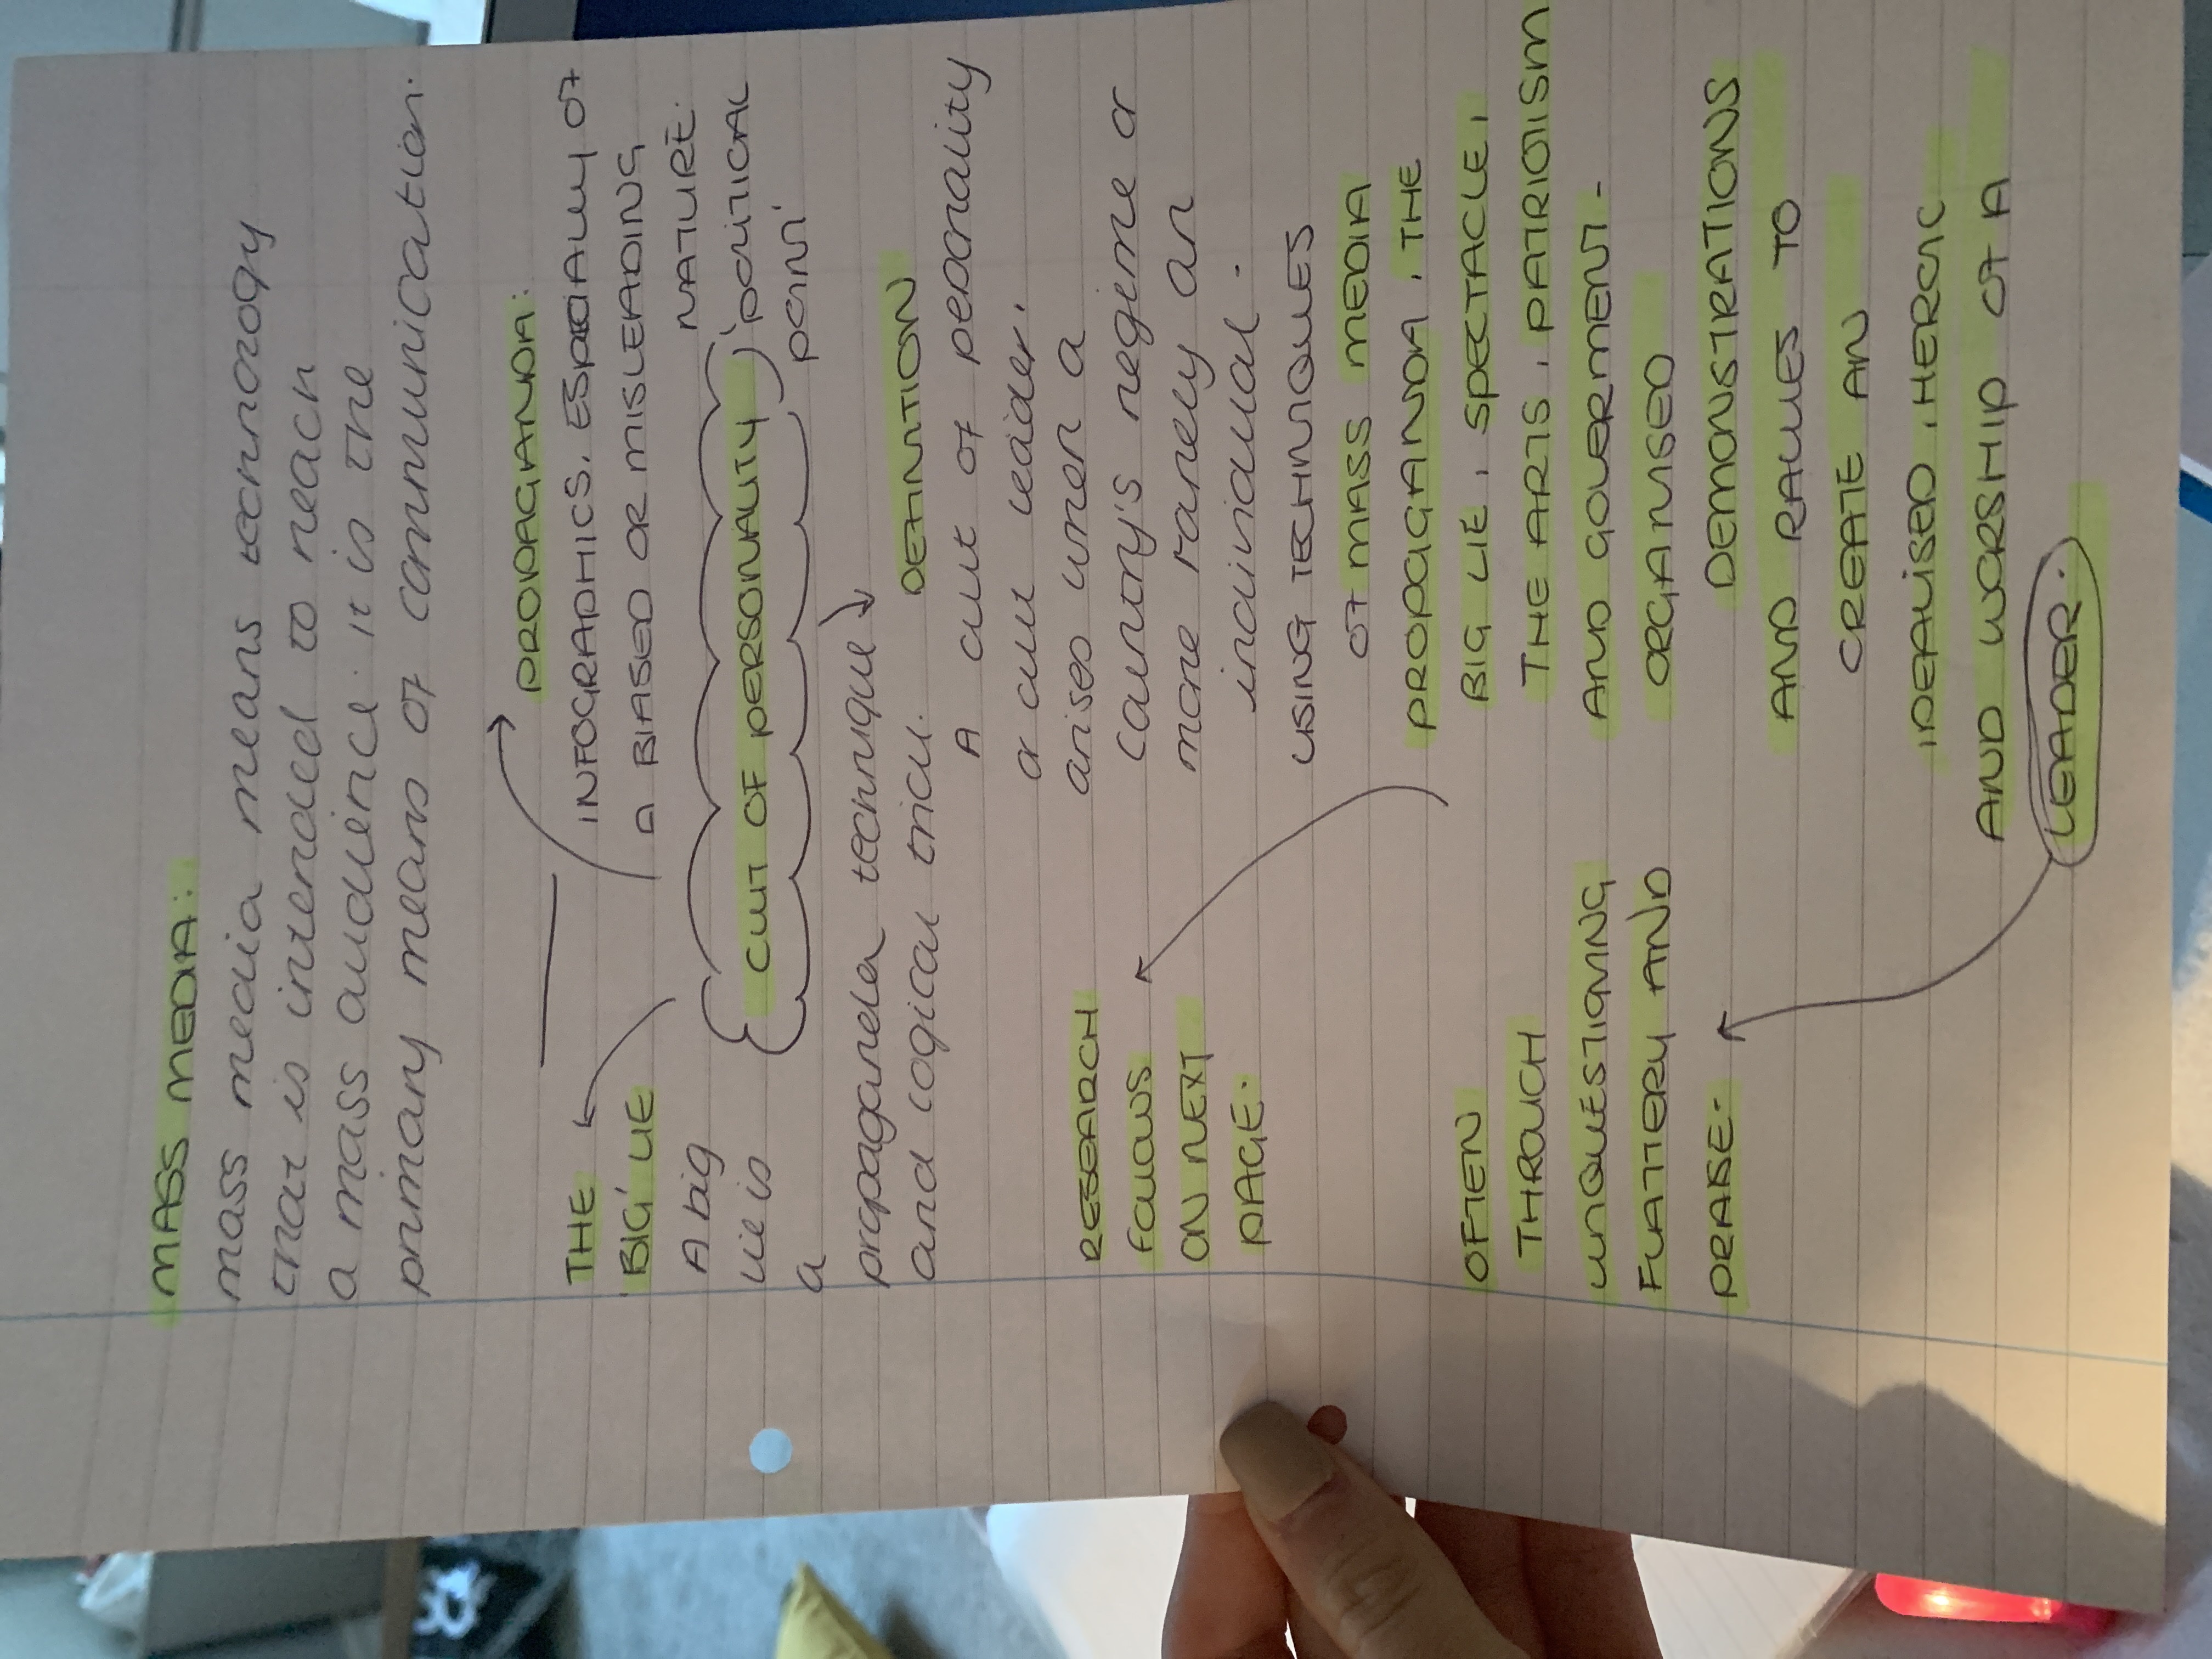 MASS MEDIA:
mass media means technology
that is intended to reach
a mass audience. it is the
primary means of communication.
PROPAGANDA:
INFOGRAPHICS, ESPECIALLY OF
A BIASED OR MISLEADING
NATURE.
'political
point'
CULT OF PERSONALITY
THE
'BIG' LIE
A big
lie is
a
propaganda technique
and logical trick.
DEFINITION
A cult of personality
or cult leader,
arises when a
country's regime or
more rarely an
individual.
USING TECHNIQUES
OF MASS MEDIA
PROPAGANDA, THE
BIG LIE, SPECTACLE,
THE ARTS, PATRIOTISM
AND GOVERMENT-
ORGANISED
DEMONSTRATIONS
AND RALLIES TO
CREATE AN
IDEALISED, HEROIC
AND WORSHIP OF A
LEADER.
RESEARCH
FOLLOWS
ON NEXT
PAGE.
OFTEN
THROUGH
UNQUESTIONING
FLATTERY AND
PRAISE.